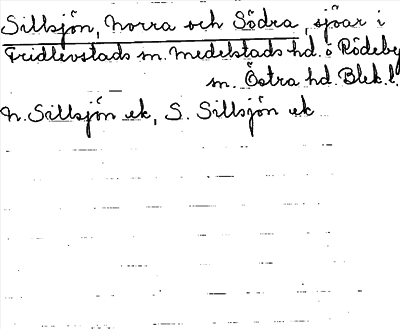 Sillsjön, Norra och Södra, sjöar i
Fridlevstads sn. Medelstads hd. o Rödeby
sn. Östra hd. Blek. l.
N. Sillsjön ek, S. Sillsjön ek